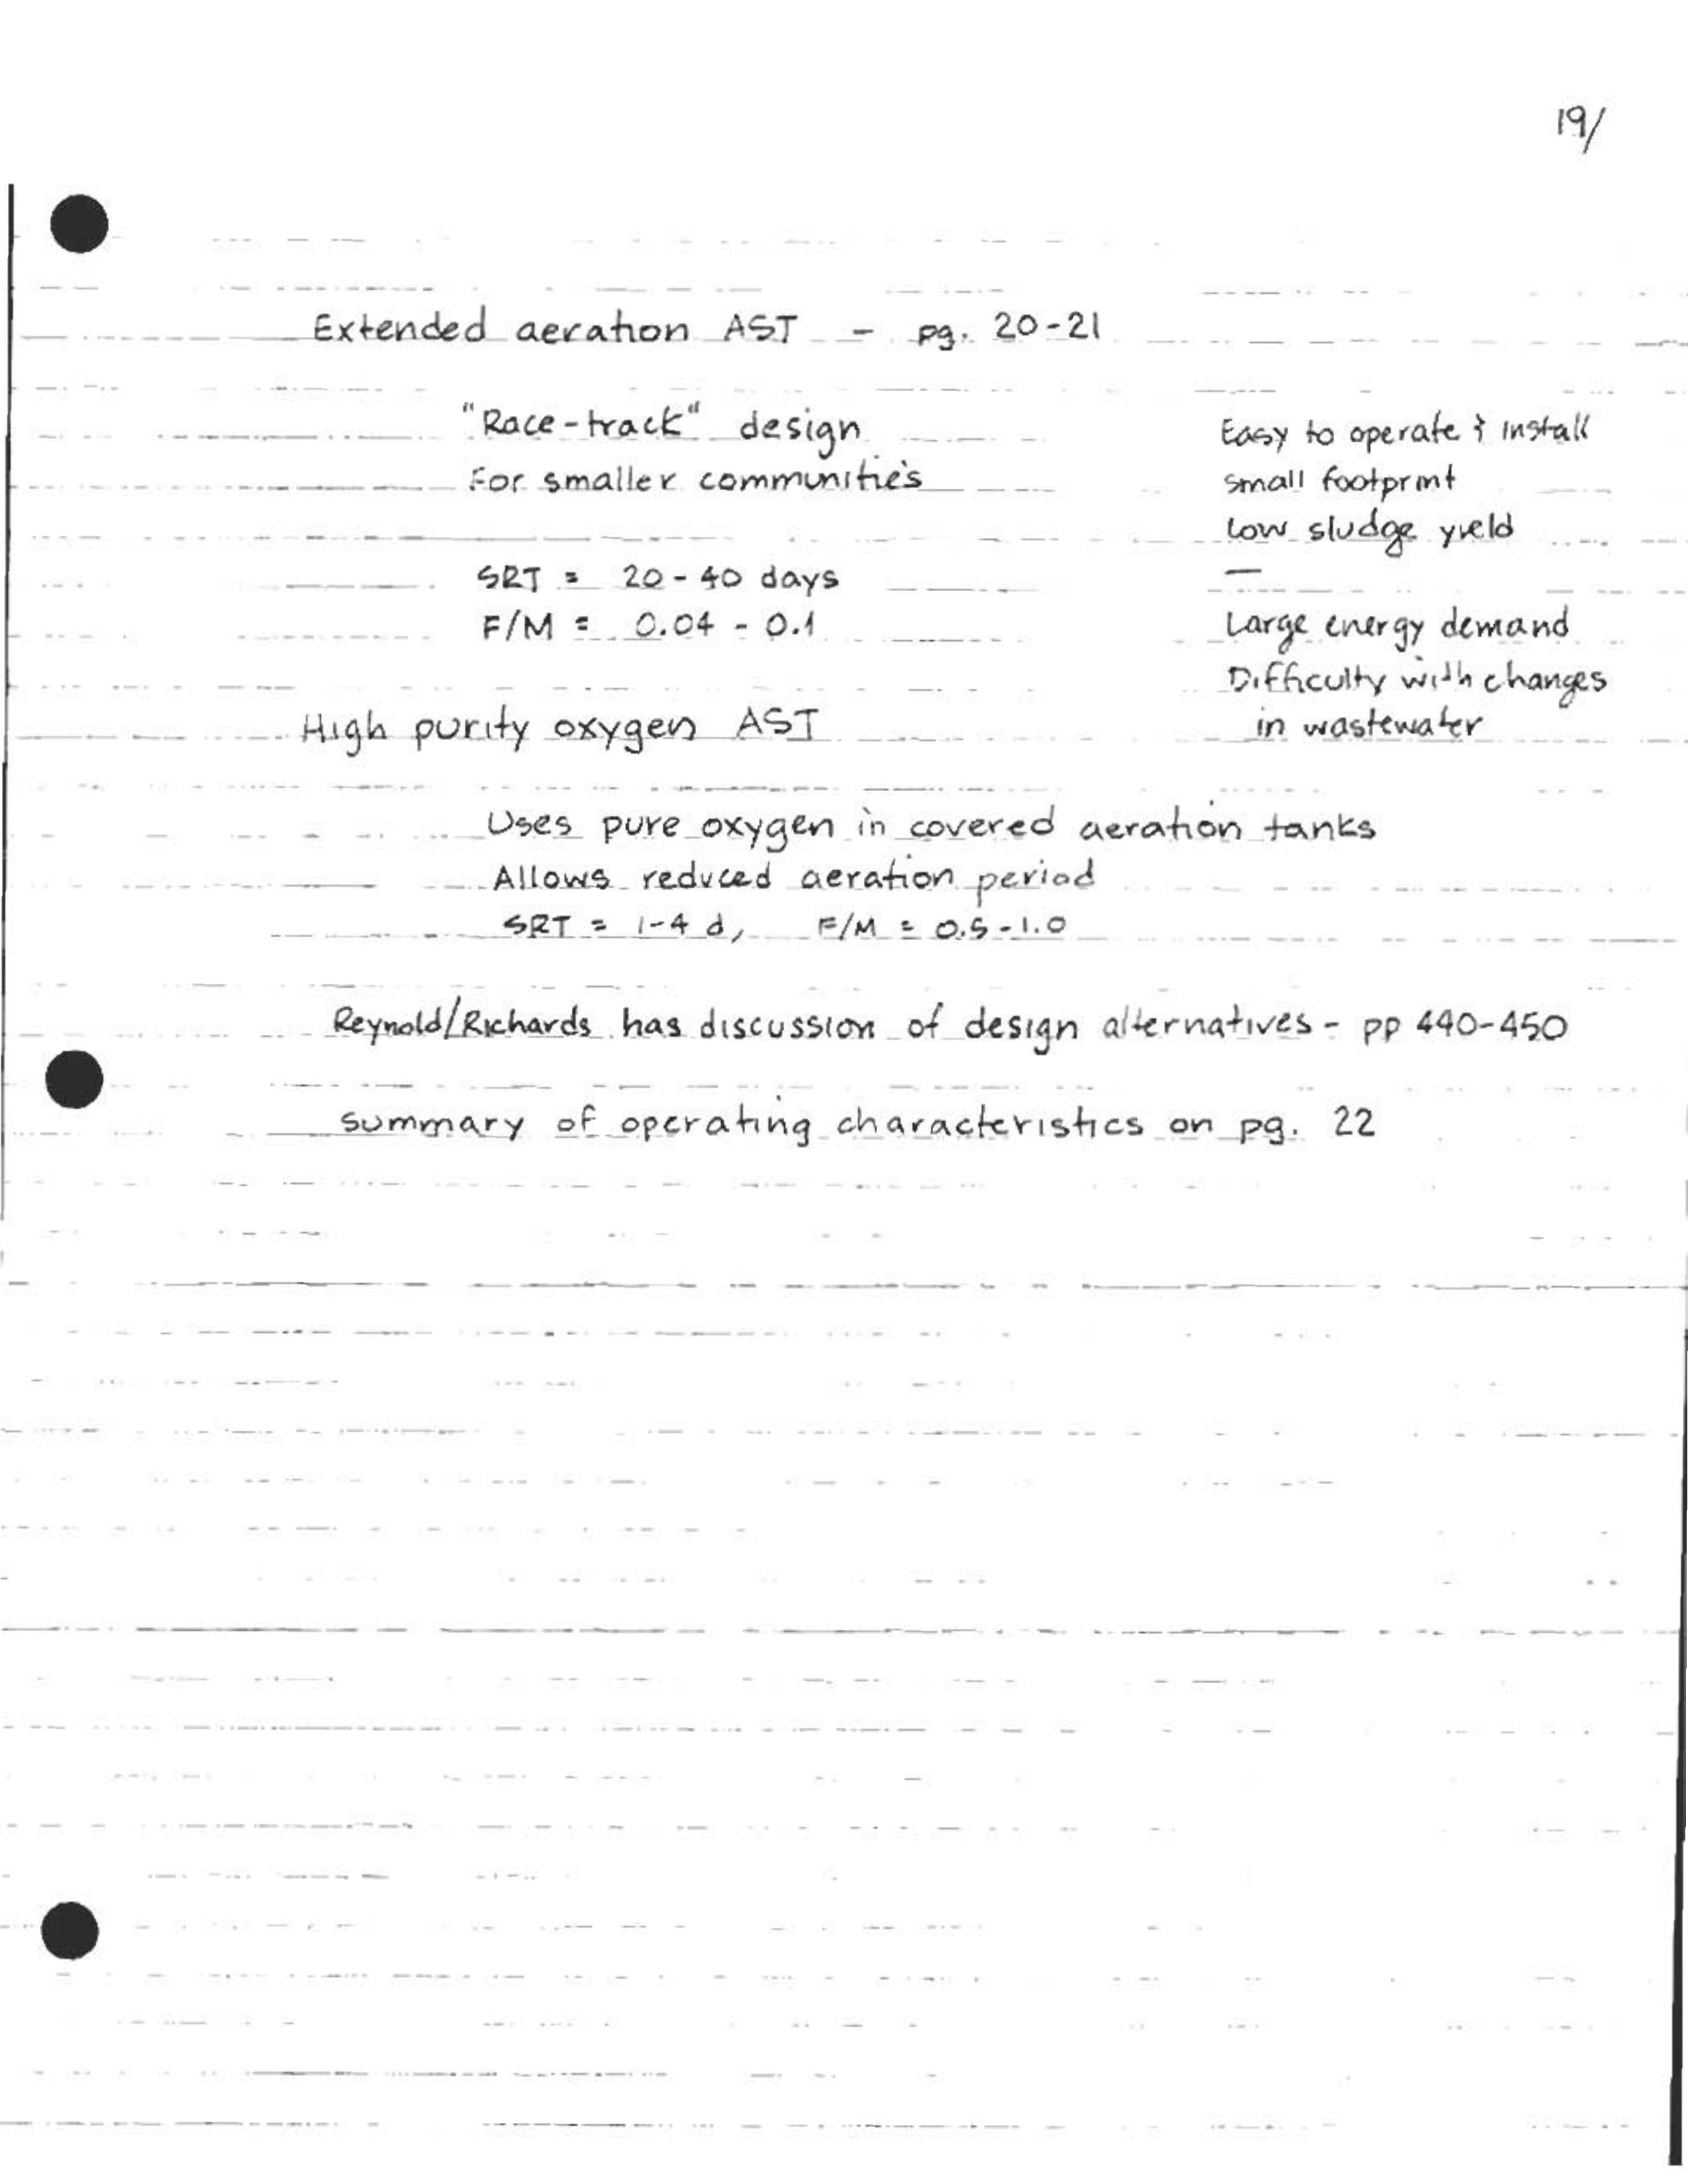 19/
Extended aeration AST - pg. 20-21
"Race-track" design
For smaller communities
SRT = 20-40 days
F/M = 0.04 - 0.1
Easy to operate & install
Small footprint
Low sludge yield
—
Large energy demand
Difficulty with changes
in wastewater
High purity oxygen AST
Uses pure oxygen in covered aeration tanks
Allows reduced aeration period
SRT = 1-4 d, F/M = 0.5-1.0
Reynold/Richards has discussion of design alternatives - pp 440-450
Summary of operating characteristics on pg. 22